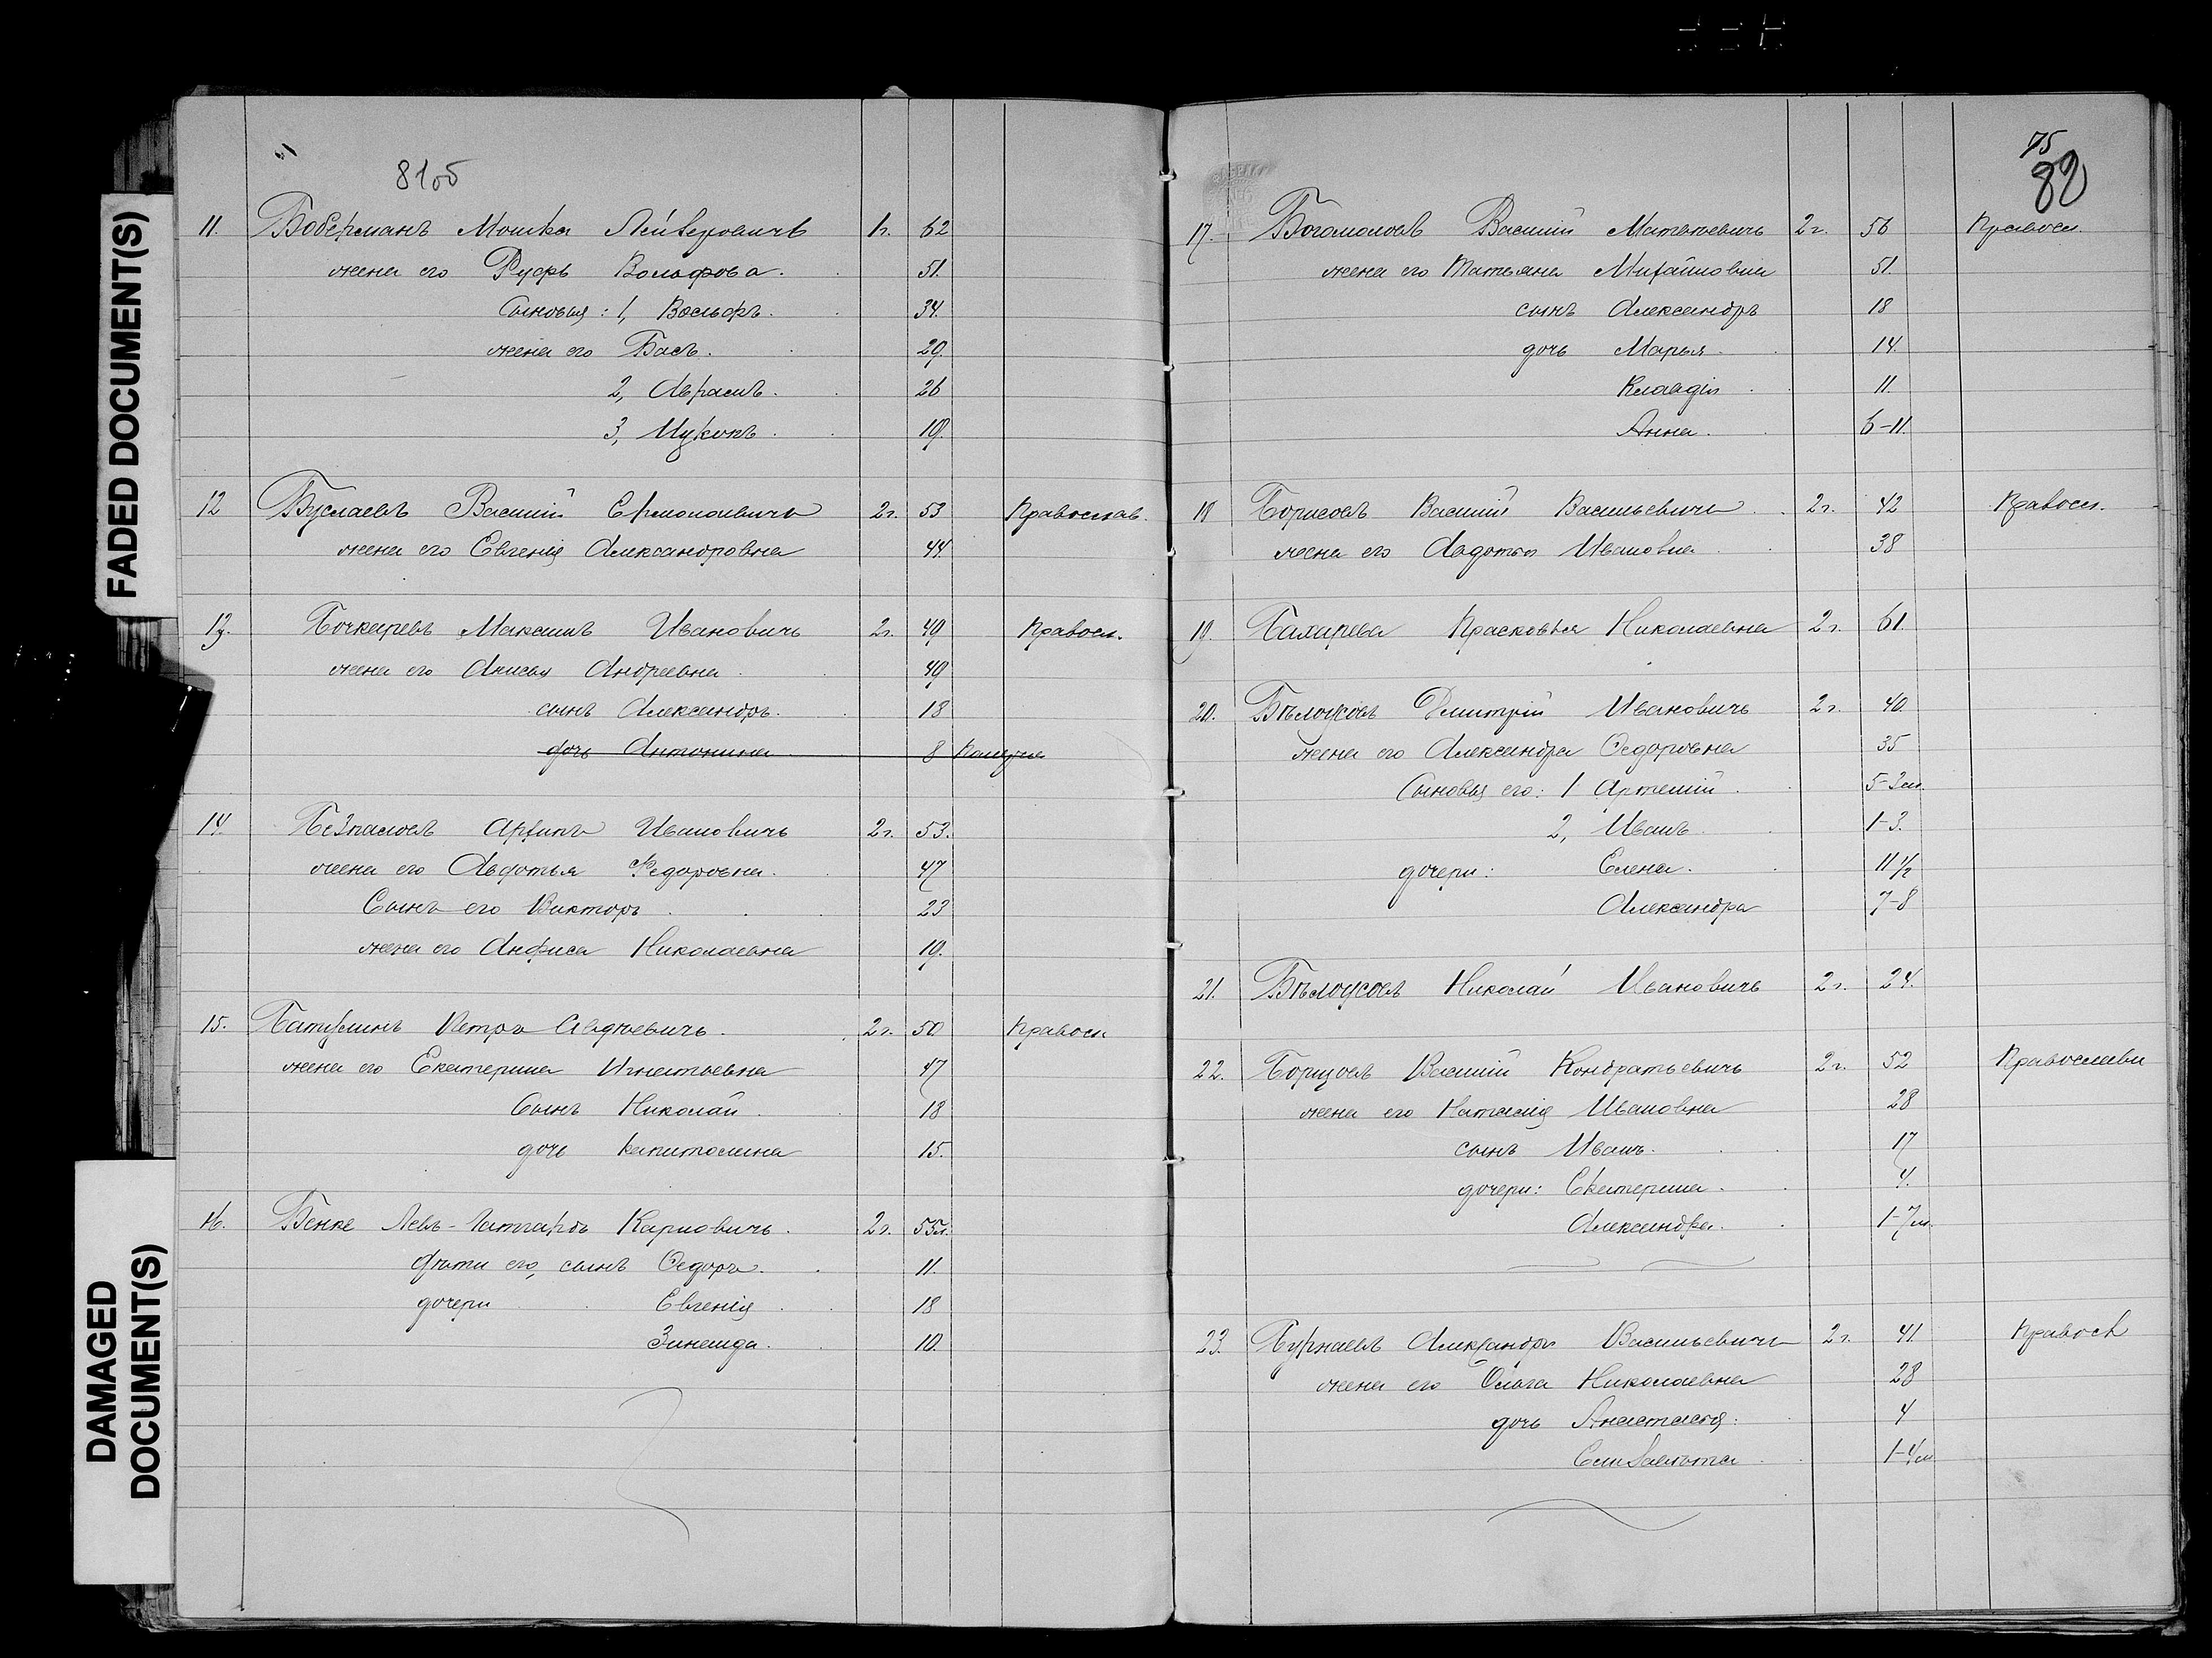 FADED DOCUMENT(S)
DAMAGED DOCUMENT(S)
81об
11. Боберманъ Мошка Лейверовичъ 1г. 62
жена его Руфь Вольфова. 51.
Сыновья: 1, Вольфъ. 34.
жена его Бася. 29.
2, Абрамъ. 26
3, Цуконъ. 19.
12 Буслаевъ Василій Ермолаевичъ 2г. 53 Православ.
жена его Евгенія Александровна 44.
13. Бочкаревъ Максимъ Ивановичъ 2г. 49 Правосл.
жена его Анисья Андреевна 49
сынъ Александръ. 18
дочь Антонина 8
14. Безпаловъ Архипъ Ивановичъ 2г. 53.
жена его Авдотья Федоровна. 47
Сынъ его Викторъ 23
жена его Анфиса Николаевна 19.
15. Батуринъ Петръ Авдѣевичъ. 2г. 50 Правосл.
жена его Екатерина Игнатьевна 47
Сынъ Николай 18
дочь Капитолина 15.
16. Бенке Левъ-Готгардъ Карловичъ. 2г. 55л.
дѣти его, сынъ Ѳедоръ. 11.
дочери Евгенія 18
Зинаида. 10.
75
82
17. Богомоловъ Василій Матвѣевичъ 2г. 56 Правосл.
жена его Татьяна Михайловна 51.
сынъ Александръ 18
дочь Марья. 14.
Клавдія 11.
Анна. 6-11.
18 Борисовъ Василій Васильевичъ 2г. 42 Правосл.
жена его Авдотья Ивановна 38
19. Бахирева Прасковья Николаевна 2г. 61.
20. Бѣлоусовъ Дмитрій Ивановичъ 2г. 40.
жена его Александра Ѳедоровна 35
Сыновья его: 1 Артемій 5-3м.
2, Иванъ 1-3.
дочери: Елена. 11 1/2
Александра 7-8
21. Бѣлоусовъ Николай Ивановичъ 2г. 24.
22. Борщовъ Василій Кондратьевичъ 2г. 52
жена его Наталія Ивановна 28
сынъ Иванъ. 17
дочери: Екатерина. 4.
Александра. 1-7м.
23. Бурнаевъ Александръ Васильевичъ 2г. 41 Правосл
жена его Ольга Николаевна 28
дочь Анастасія. 4
Елизавета 1-4м